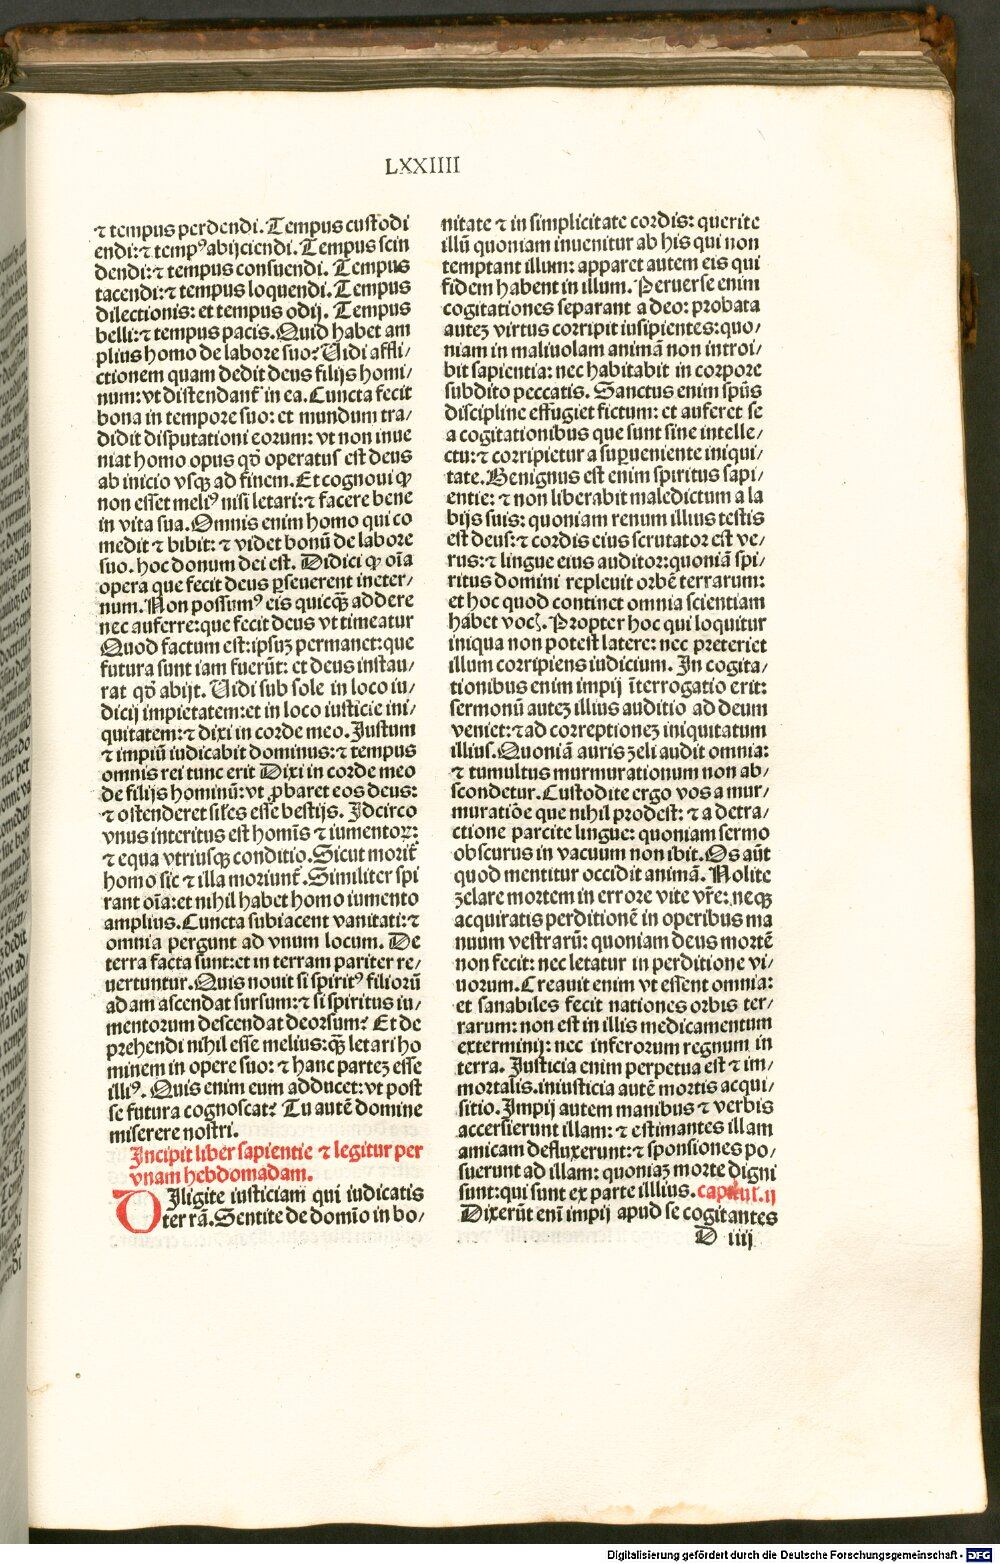 LXXIIII
⁊ tempus perdendi. Tempus custodi
endi:⁊ tempꝰ abijciendi. Tempus scin
dendi:⁊ tempus consuendi. Tempus
tacendi:⁊ tempus loquendi. Tempus
dilectionis: et tempus odij. Tempus
belli:⁊ tempus pacis. Quid habet am
plius homo de labore suo? Uidi affli/
ctionem quam dedit deus filijs homi/
num: vt distendant᷑ in ea. Cuncta fecit
bona in tempore suo: et mundum tra/
didit disputationi eorum: vt non inue
niat homo opus qḋ operatus est deus
ab inicio vsqꝫ ad finem. Et cognoui ꝙ
non esset meliꝰ nisi letari:⁊ facere bene
in vita sua. Omnis enim homo qui co
medit ⁊ bibit: ⁊ videt bonū de labore
suo. hoc donum dei est. Didici ꝙ oīa
opera que fecit deus ꝑseuerent in eter/
num. Non possumꝰ eis quicqꝫ̄ addere
nec auferre: que fecit deus vt timeatur
Quod factum est: ipsuꝫ permanet: que
futura sunt iam fuerūt: et deus instau/
rat qḋ abijt. Uidi sub sole in loco iu/
dicij impietatem: et in loco iusticie ini/
quitatem:⁊ dixi in corde meo. Justum
⁊ impiū iudicabit dominus:⁊ tempus
omnis rei tunc erit Dixi in corde meo
de filijs hominū: vt ꝓbaret eos deus:
⁊ ostenderet sil'es esse bestijs. Jdcirco
vnus interitus est homīs ⁊ iumentoꝝ:
⁊ equa vtriusqꝫ conditio. Sicut morit᷑
homo sic ⁊ illa moriunt᷑. Similiter spi
rant oīa: et nihil habet homo iumento
amplius. Cuncta subiacent vanitati:⁊
omnia pergunt ad vnum locum. De
terra facta sunt: et in terram pariter re/
uertuntur. Quis nouit si spiritꝰ filiorū
adam ascendat sursum:⁊ si spiritus iu/
mentorum descendat deorsum? Et de
prehendi nihil esse melius: qꝫ̄ letari ho
minem in opere suo: ⁊ hanc parteꝫ esse
illiꝰ. Quis enim eum adducet: vt post
se futura cognoscat? Tu autē domine
miserere nostri.
Jncipit liber sapientie ⁊ legitur per
vnam hebdomadam.
DJligite iusticiam qui iudicatis
terrā. Sentite de domīo in bo/
nitate ⁊ in simplicitate cordis: querite
illū quoniam inuenitur ab his qui non
temptant illum: apparet autem eis qui
fidem habent in illum. Peruerse enim
cogitationes separant a deo: probata
auteꝫ virtus corripit insipientes: quo/
niam in maliuolam animā non introi/
bit sapientia: nec habitabit in corpore
subdito peccatis. Sanctus enim spūs
discipline effugiet fictum: et auferet se
a cogitationibus que sunt sine intelle/
ctu:⁊ corripietur a suꝑueniente iniqui/
tate. Benignus est enim spiritus sapi/
entie: ⁊ non liberabit maledictum a la
bijs suis: quoniam renum illius testis
est deus:⁊ cordis eius scrutator est ve/
rus:⁊ lingue eius auditor: quoniā spi/
ritus domini repleuit orbē terrarum:
et hoc quod continet omnia scientiam
habet voc̨. Propter hoc qui loquitur
iniqua non potest latere: nec preteriet
illum corripiens iudicium. Jn cogita/
tionibus enim impij īterrogatio erit:
sermonū auteꝫ illius auditio ad deum
veniet:⁊ ad correptioneꝫ iniquitatum
illius. Quoniā auris zeli audit omnia:
⁊ tumultus murmurationum non ab/
scondetur. Custodite ergo vos a mur/
muratiōe que nihil prodest: ⁊ a detra/
ctione parcite lingue: quoniam sermo
obscurus in vacuum non ibit. Os aūt
quod mentitur occidit animā. Nolite
zelare mortem in errore vite vr̄e: neqꝫ
acquiratis perditionē in operibus ma
nuum vestrarū: quoniam deus mortē
non fecit: nec letatur in perditione vi/
uorum. Creauit enim vt essent omnia:
et sanabiles fecit nationes orbis ter/
rarum: non est in illis medicamentum
exterminij: nec inferorum regnum in
terra. Justicia enim perpetua est ⁊ im/
mortalis. iniusticia autē mortis acqui/
sitio. Jmpij autem manibus ⁊ verbis
accersierunt illam: ⁊ estimantes illam
amicam defluxerunt:⁊ sponsiones po/
suerunt ad illam: quoniaꝫ morte digni
sunt: qui sunt ex parte illlius. capitul. ij
Dixerūt enī impij apud se cogitantes
D iiij
Digitalisierung gefördert durch die Deutsche Forschungsgemeinschaft - DFG